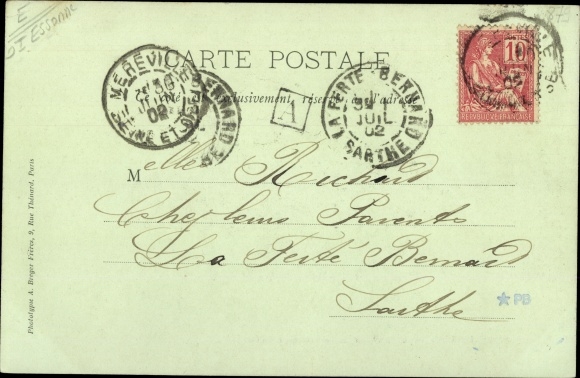 E
CARTE POSTALE
MEREVILLE
30
JUIL
02
SNE ET OISE
BERNARD
LA FERTE-BERNARD
JUIL
02
SARTHE
A
exclusivement réservé à l'adresse
10
POSTES
REPUBLIQUE FRANÇAISE
Melle Richard
Chez leurs Parents
La Ferté Bernard
Sarthe
Phototypie A. Breger Frères, 9, Rue Thénard, Paris
PB